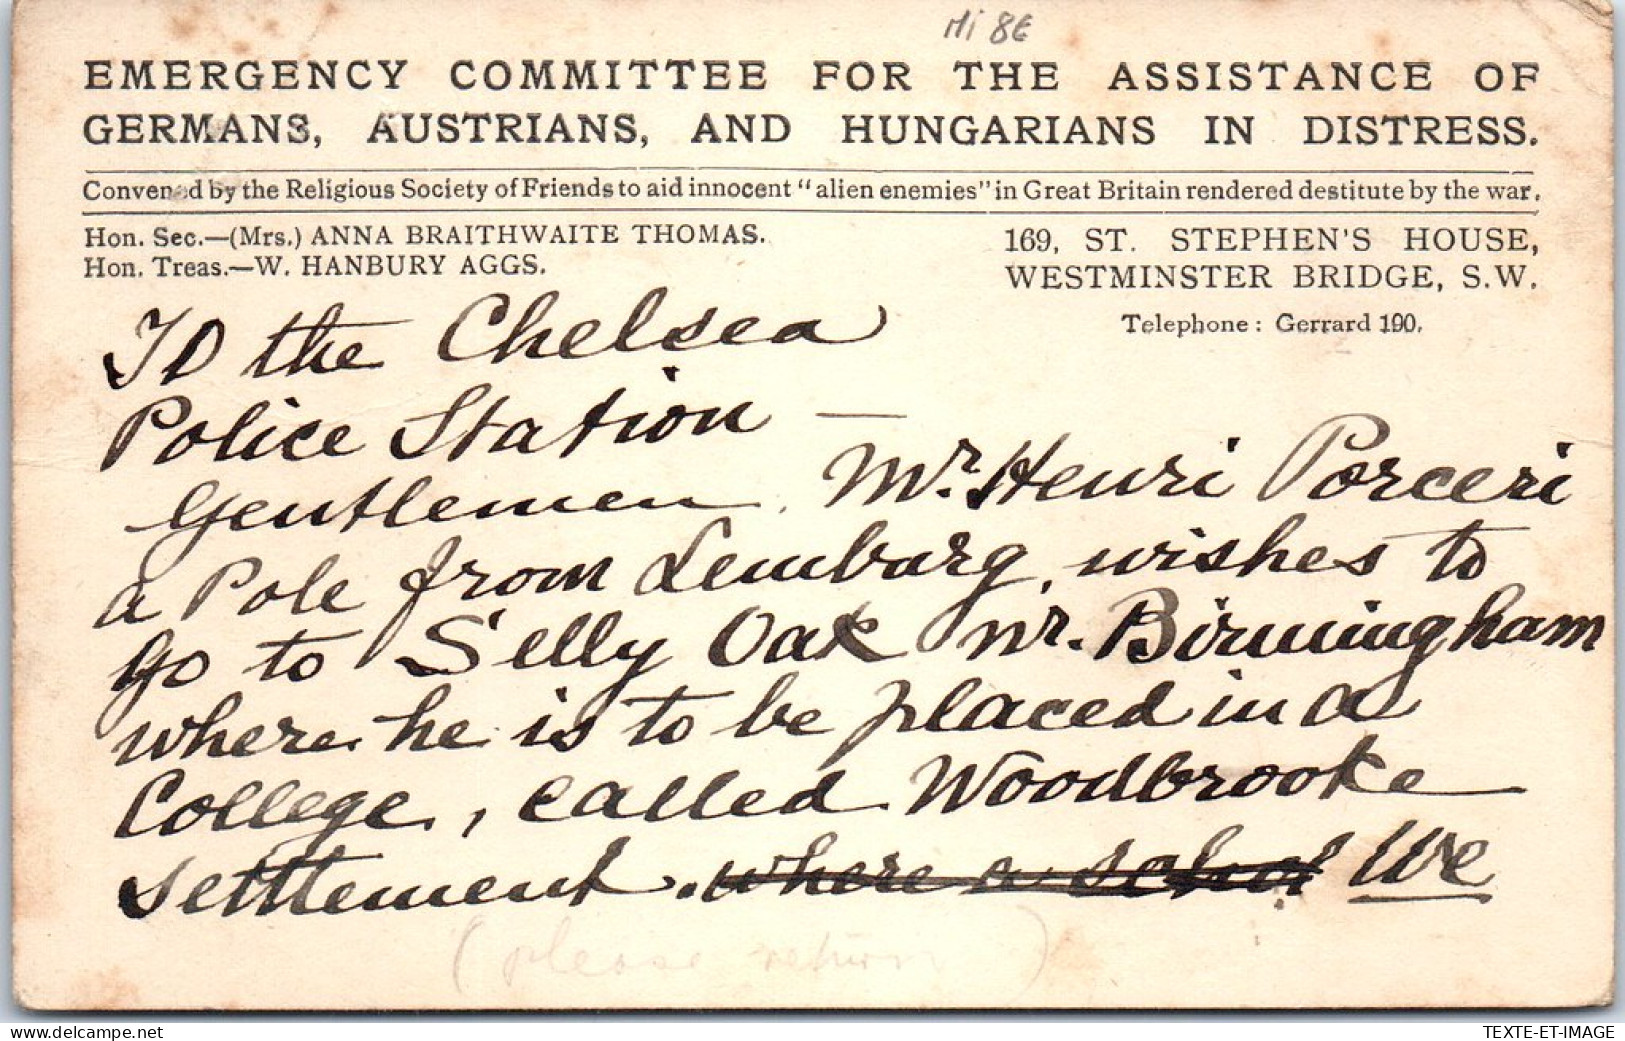 Mi 8€
EMERGENCY COMMITTEE FOR THE ASSISTANCE OF
GERMANS, AUSTRIANS, AND HUNGARIANS IN DISTRESS.
Convened by the Religious Society of Friends to aid innocent "alien enemies" in Great Britain rendered destitute by the war.
Hon. Sec.—(Mrs.) ANNA BRAITHWAITE THOMAS.
Hon. Treas.—W. HANBURY AGGS.
169, ST. STEPHEN'S HOUSE,
WESTMINSTER BRIDGE, S.W.
Telephone: Gerrard 190.
To the Chelsea
Police Station —
Gentlemen. Mr. Henri Porceri
a Pole from Lemburg, wishes to
go to Selly Oak nr. Birmingham
where he is to be placed in a
College, called Woodbrooke
Settlement. where a school We
(please return)
delcampe.net
TEXTE-ET-IMAGE